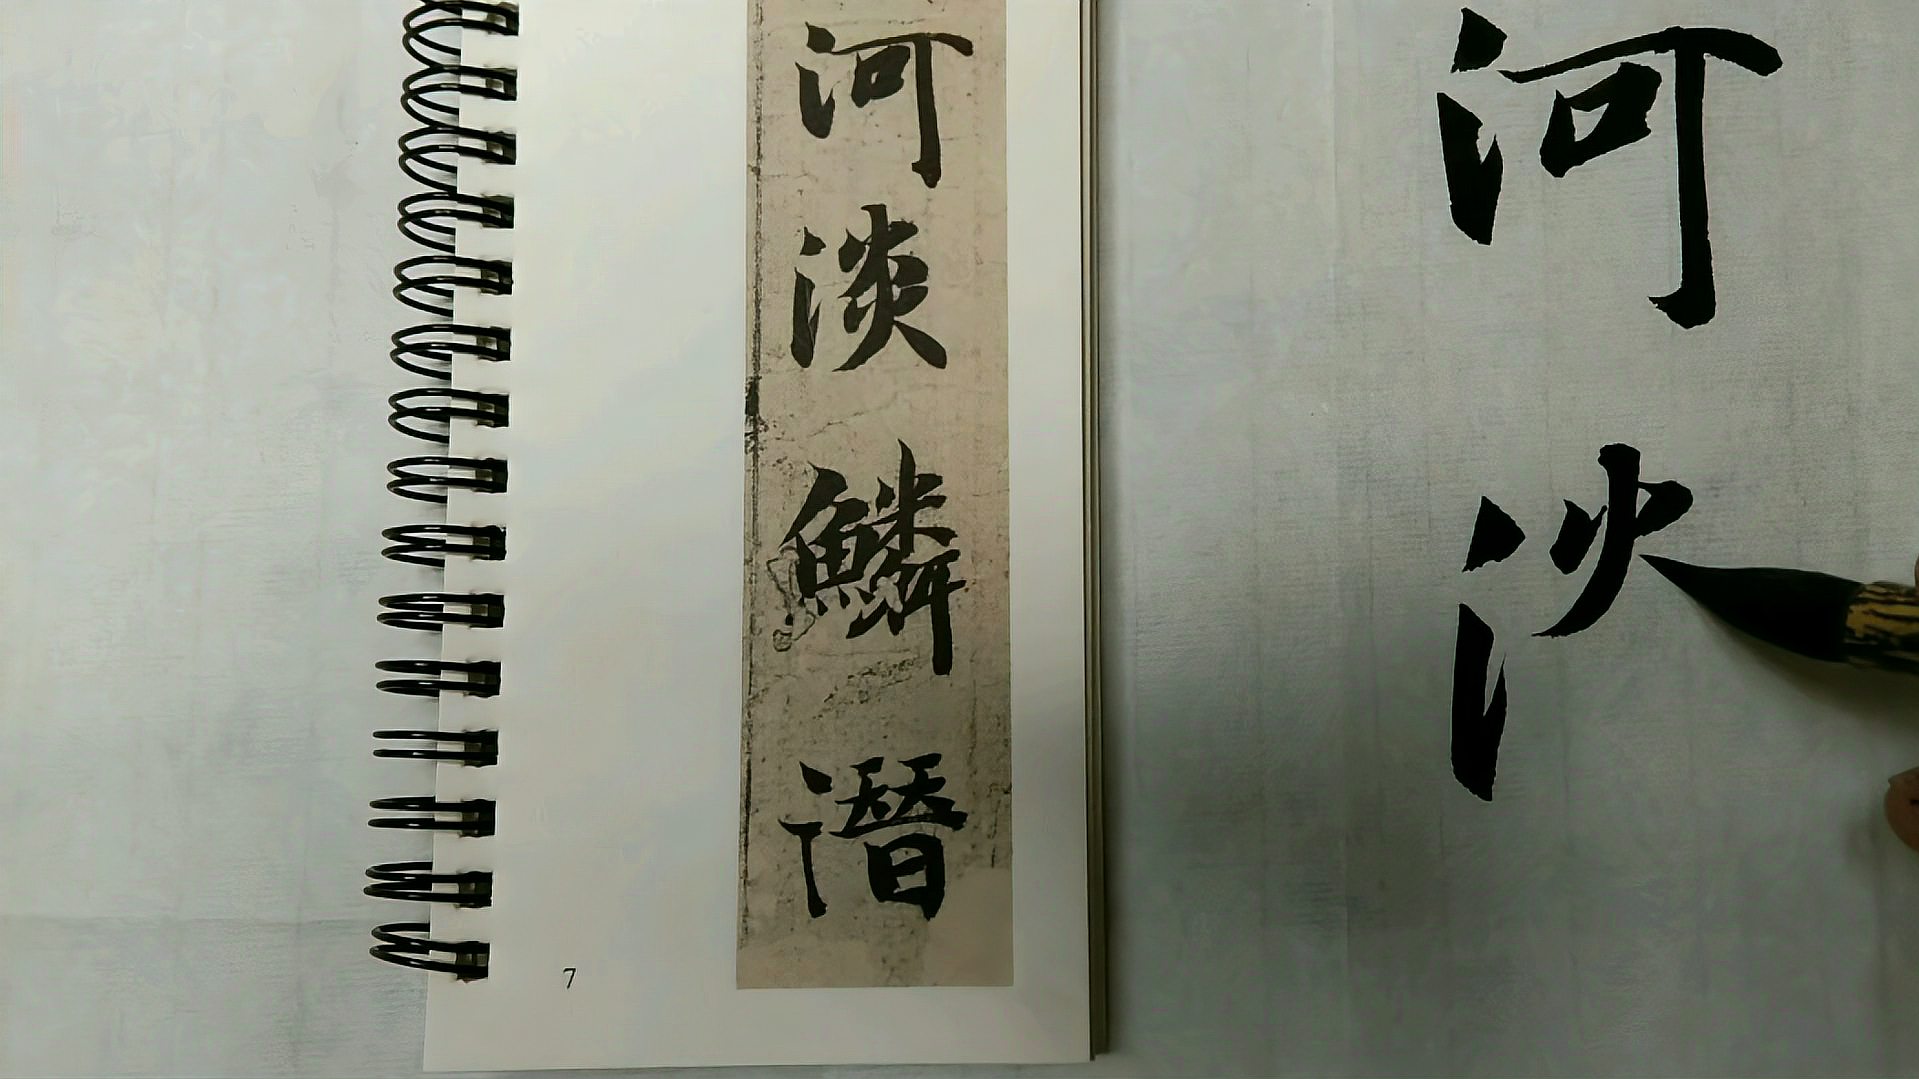 河淡鱗潛
7
河